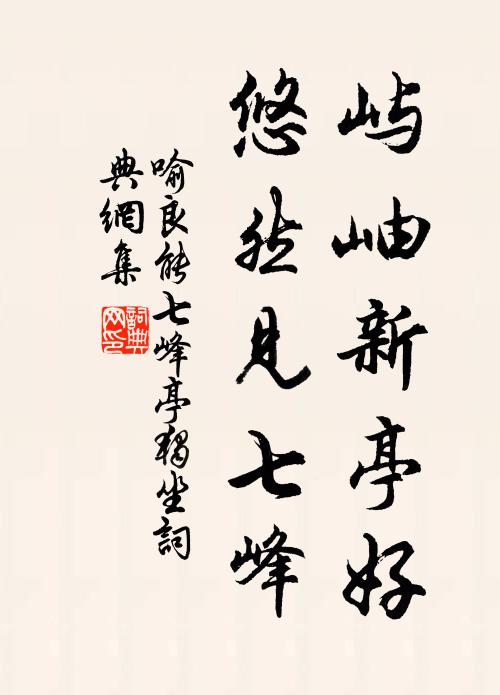 屿岫新亭好
悠然见七峰
喻良能七峰亭獨坐詞
典網集
詞典
网印